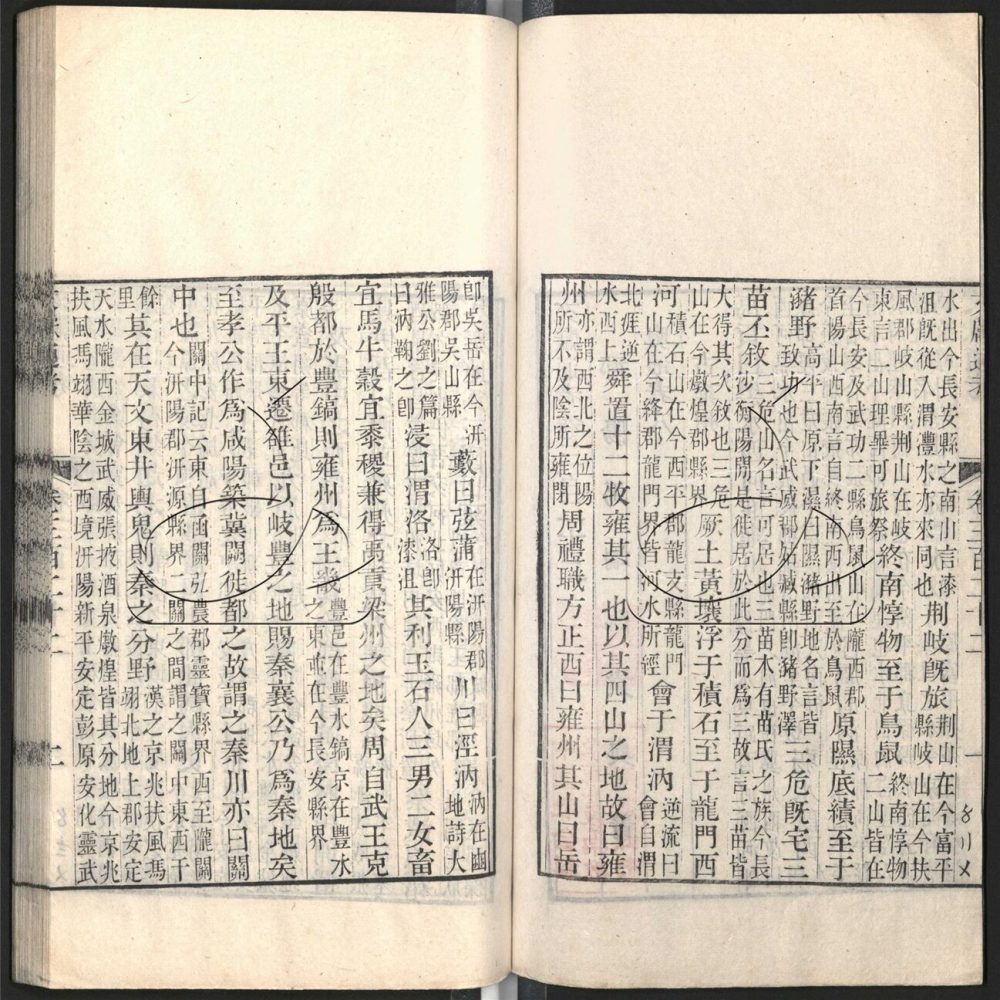 水出今長安縣之南山言漆
沮旣從入渭灃水亦來同也
荆岐旣旅
荆山在今富平
縣岐山在今扶
風郡岐山縣荆山在岐
東言二山理畢可旅祭
終南惇物至于鳥鼠
終南惇物
二山皆在
今長安及武功二縣鳥鼠山在隴西郡
首陽山西南言自終南西出至於鳥鼠
原隰底績至于
豬野
高平曰原下濕曰隰豬野地名言皆
致功也今武威郡姑臧縣卽豬野澤
三危旣宅三
苗丕敘
三危山名言可居也三苗本有苗氏之族今長
沙衡陽閒是徙居於此分而爲三故言三苗皆
大得其次敘也三危
山在今燉煌郡縣界
厥土黃壤浮于積石至于龍門西
河
積石山在今西平郡龍支縣龍門
山在今絳郡龍門界皆河水所經
會于渭汭
逆流曰
會自渭
北涯逆
水西上
舜置十二牧雍其一也以其四山之地故曰雍
州
亦謂西北之位陽
所不及陰所雍閉
周禮職方正西曰雍州其山曰岳
卽吳岳在今汧
陽郡吳山縣
藪曰弦蒲
在汧陽郡
汧陽縣
川曰涇汭
汭在豳
地詩大
雅公劉之篇
曰汭鞫之卽
浸曰渭洛
洛卽
漆沮
其利玉石人三男二女畜
宜馬牛穀宜黍稷兼得禹貢梁州之地矣周自武王克
殷都於豐鎬則雍州爲王畿
豐邑在豐水鎬京在豐水
之東並在今長安縣界
及平王東遷雒邑以岐豐之地賜秦襄公乃爲秦地矣
至孝公作爲咸陽築冀闕徙都之故謂之秦川亦曰關
中也
關中記云東自函關弘農郡靈寶縣界西至隴關
今汧陽郡汧源縣界二關之間謂之關中東西千
餘
里
其在天文東井輿鬼則秦之分野
漢之京兆扶風馮
翊北地上郡安定
天水隴西金城武威張掖酒泉燉煌皆其分地今京兆
扶風馮翊華陰之西境汧陽新平安定彭原安化靈武